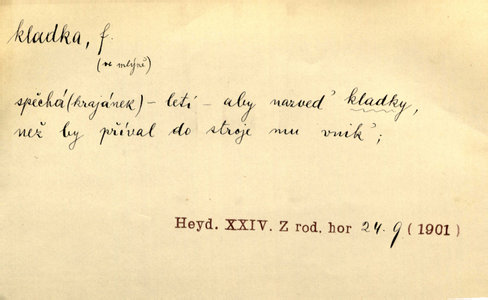 kladka, f.
(ve mlýně)
spěchá (krajánek) – letí – aby nazved' kladky,
než by příval do stroje mu vnik';
Heyd. XXIV. Z rod. hor 24. 9 (1901)